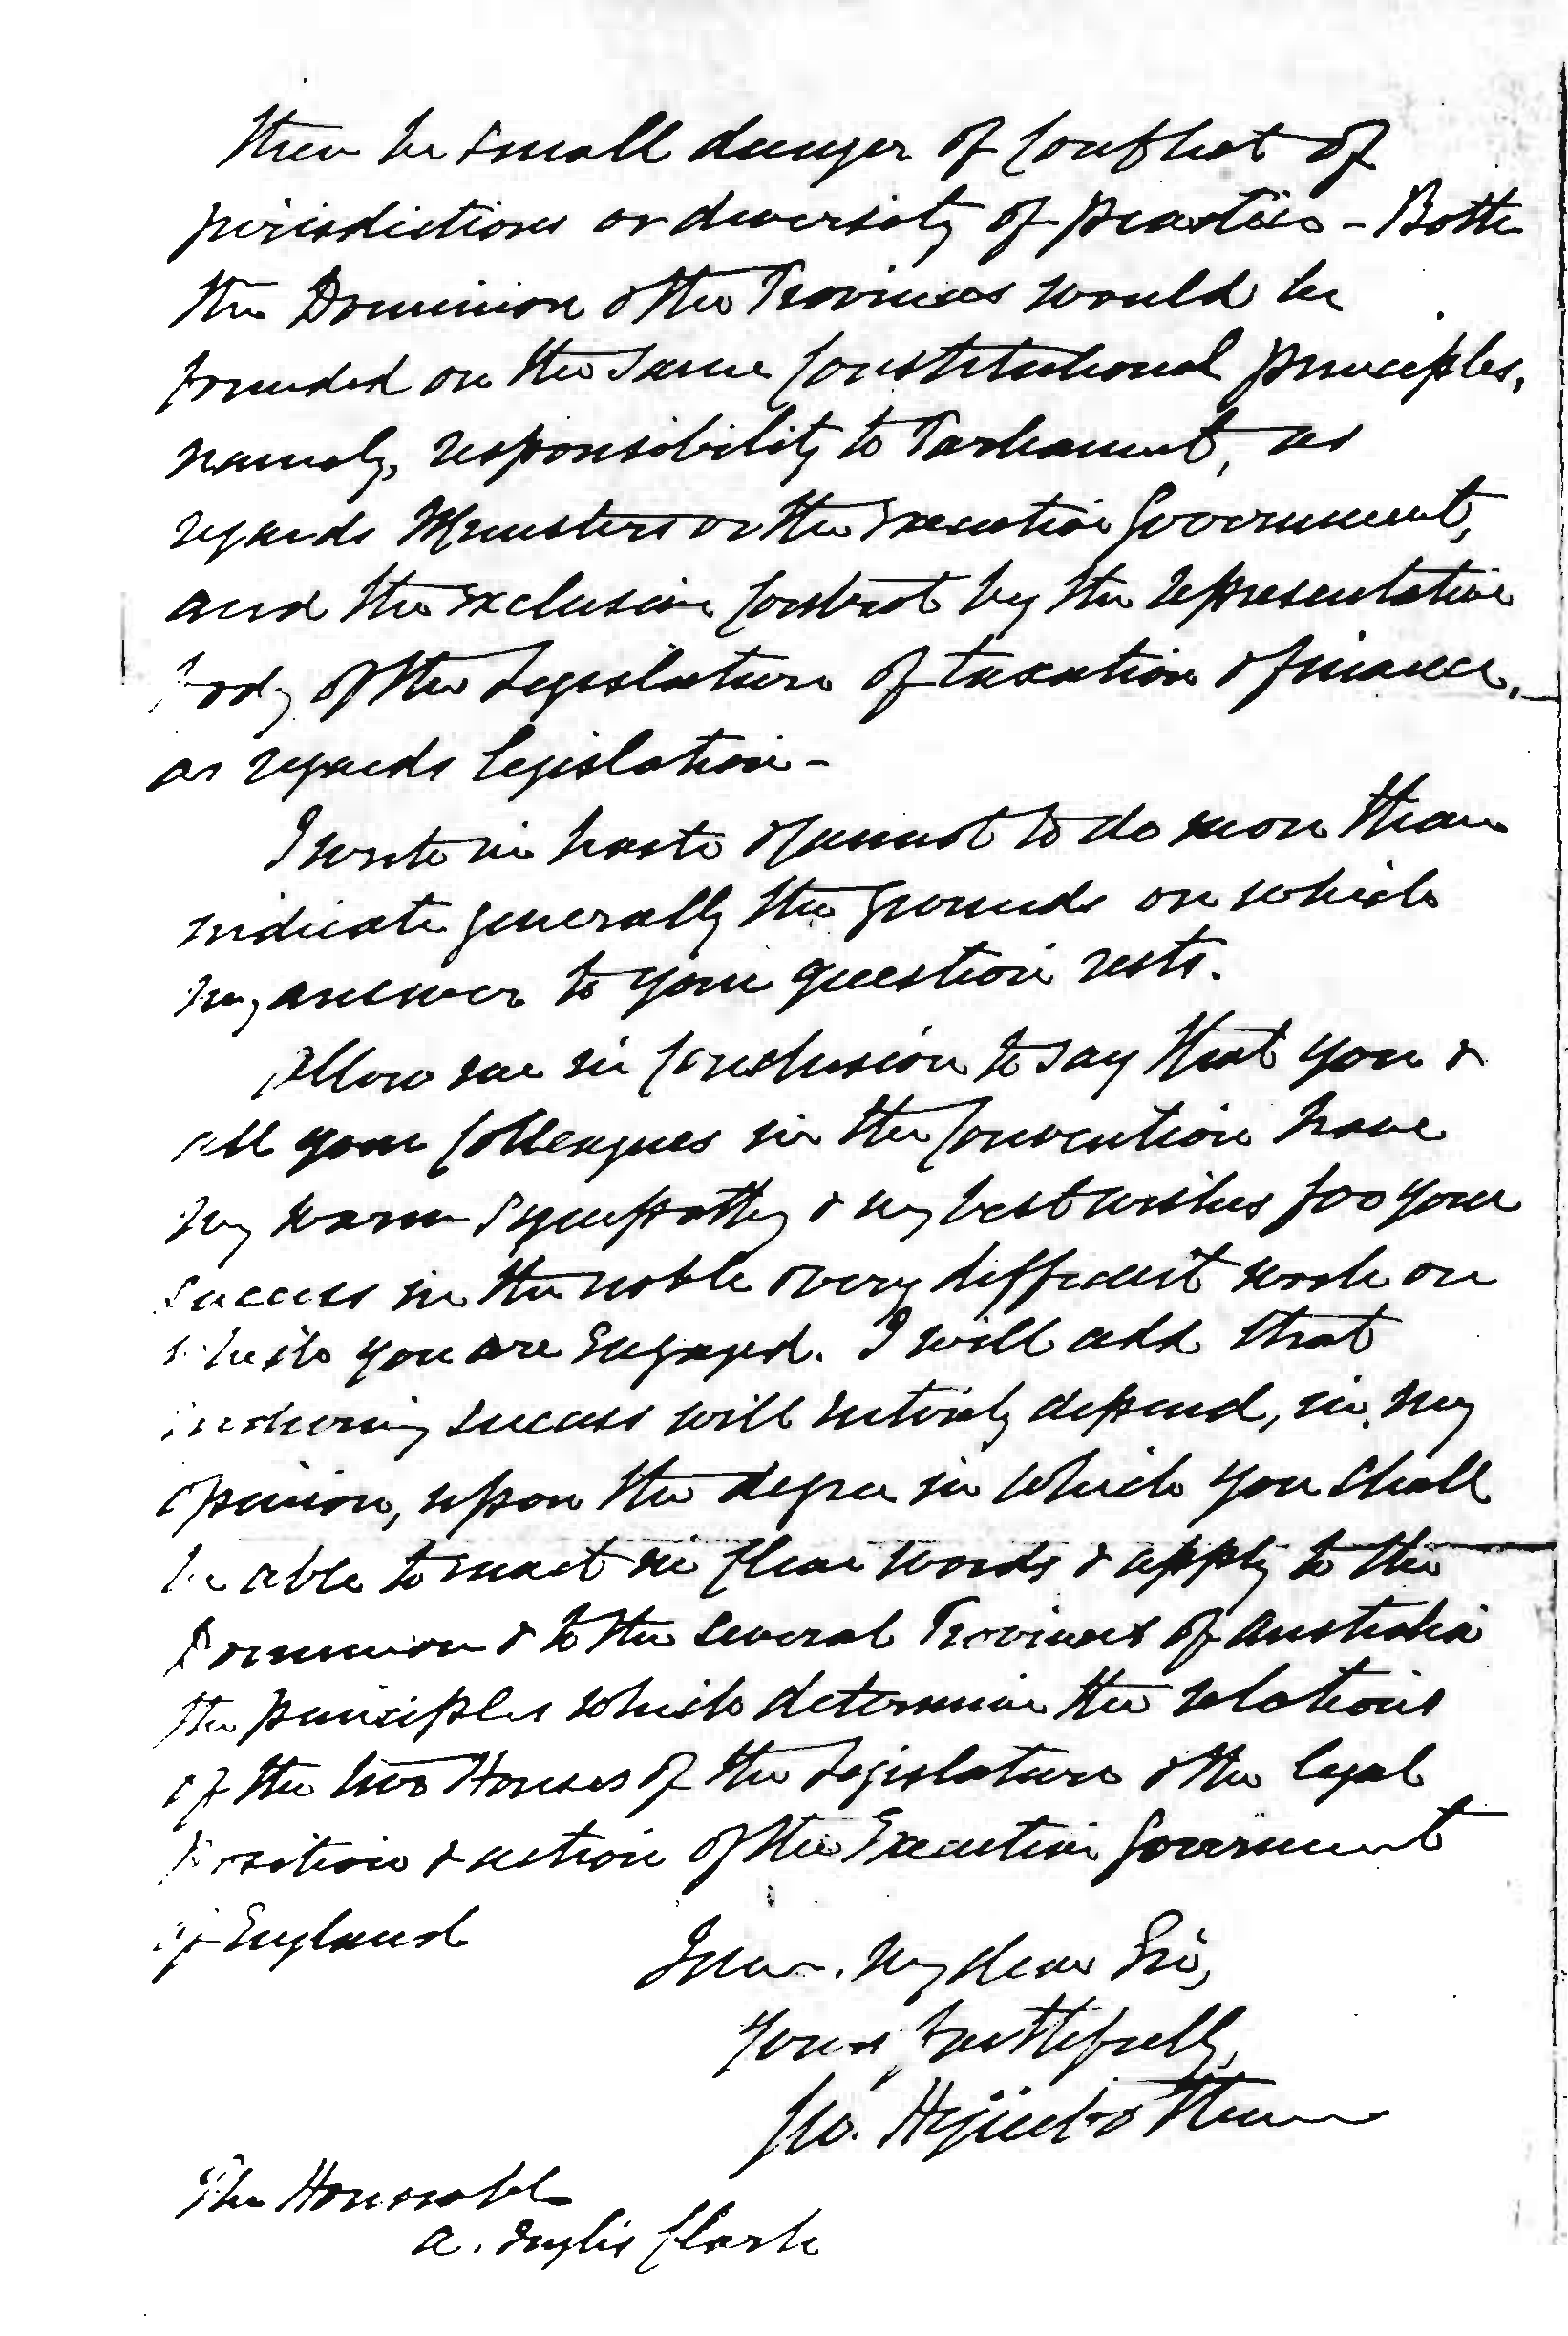 then be small danger of conflict of
jurisdictions or diversity of practice - Both
the Dominion & the Provinces would be
founded on the same Constitutional principles,
namely, responsibility to Parliament, as
regards Ministers or the Executive Government,
and the exclusive control by the representative
body of the Legislature of taxation & finance,
as regards legislation -
I write in haste & cannot to do more than
indicate generally the grounds on which
my answer to your question rests.
Allow me in conclusion to say that you &
all your Colleagues in the Convention have
my warm sympathy & my best wishes for your
success in the noble & very difficult work on
which you are engaged. I will add that
enduring success will entirely depend, in my
opinion, upon the degree in which you shall
be able to enact in clear words & apply to the
Dominion & to the several Provinces of Australia
the principles which determine the relations
of the two Houses of the Legislature & the legal
position & action of the Executive Government
of England
my dear Sir,
Yours faithfully,
Geo. Higinbotham
The Honorable
A. Inglis Clark